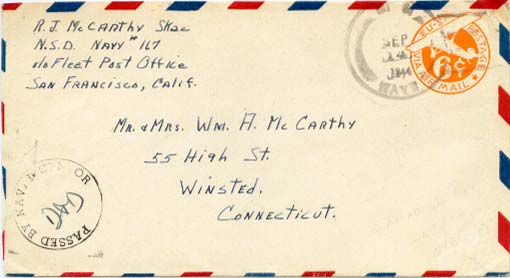 R. J. McCarthy SK2c
N.S.D. Navy #167
c/o Fleet Post Office
San Francisco, Calif.
U.S. POSTAGE
6¢
VIA AIR MAIL
SEP
1944
NAVY
Mr. & Mrs. Wm. A. McCarthy
55 High St.
Winsted,
Connecticut.
PASSED BY NAVAL CENSOR